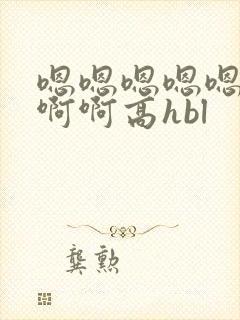 嗯嗯嗯嗯嗯
啊啊高hbl
龚勲